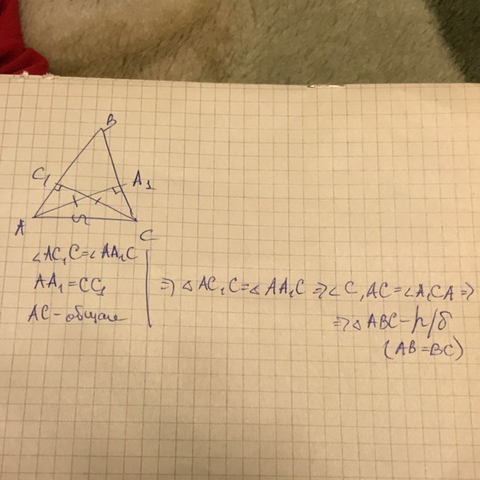 B
C₁ A₁
A C
∠AC₁C=∠AA₁C
AA₁=CC₁
AC-общая
⇒ △AC₁C=△AA₁C ⇒ ∠C₁AC=∠A₁CA ⇒
⇒ △ABC-р/б
(AB=BC)